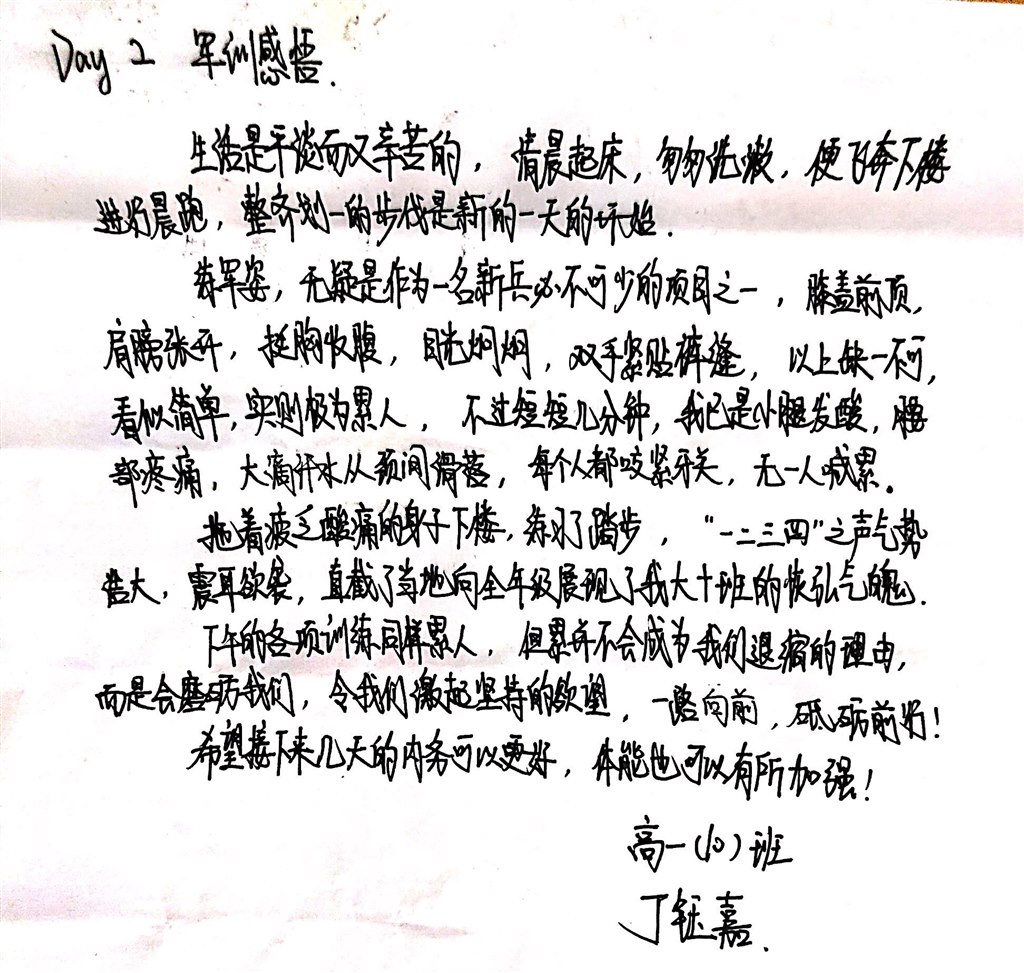 Day 2 军训感悟.
生活是平淡而又辛苦的，清晨起床，匆匆洗漱，便飞奔下楼
进行晨跑，整齐划一的步伐是新的一天的开始.
站军姿，无疑是作为一名新兵必不可少的项目之一，膝盖前顶，
肩膀张开，挺胸收腹，目光炯炯，双手紧贴裤缝，以上缺一不可，
看似简单，实则极为累人，不过短短几分钟，我已是小腿发酸，腰
部疼痛，大滴汗水从颈间滑落，每个人都咬紧牙关，无一人喊累。
拖着疲乏酸痛的身子下楼，练习了踏步，“一二三四”之声气势
浩大，震耳欲聋，直截了当地向全年级展现了我大十班的恢弘气魄.
下午的各项训练同样累人，但累并不会成为我们退缩的理由，
而是会磨砺我们，令我们激起坚持的欲望，一路向前，砥砺前行！
希望接下来几天的内务可以更好，体能也可以有所加强！
高一（10）班
丁钰嘉.